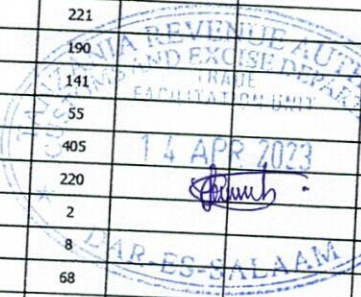 221
190
141
55
405
220
2
8
68
TANZANIA REVENUE AUTH
CUSTOMS AND EXCISE DEPAR
TRADE
FACILITATION UNIT
14 APR 2023
DAR-ES-SALAAM